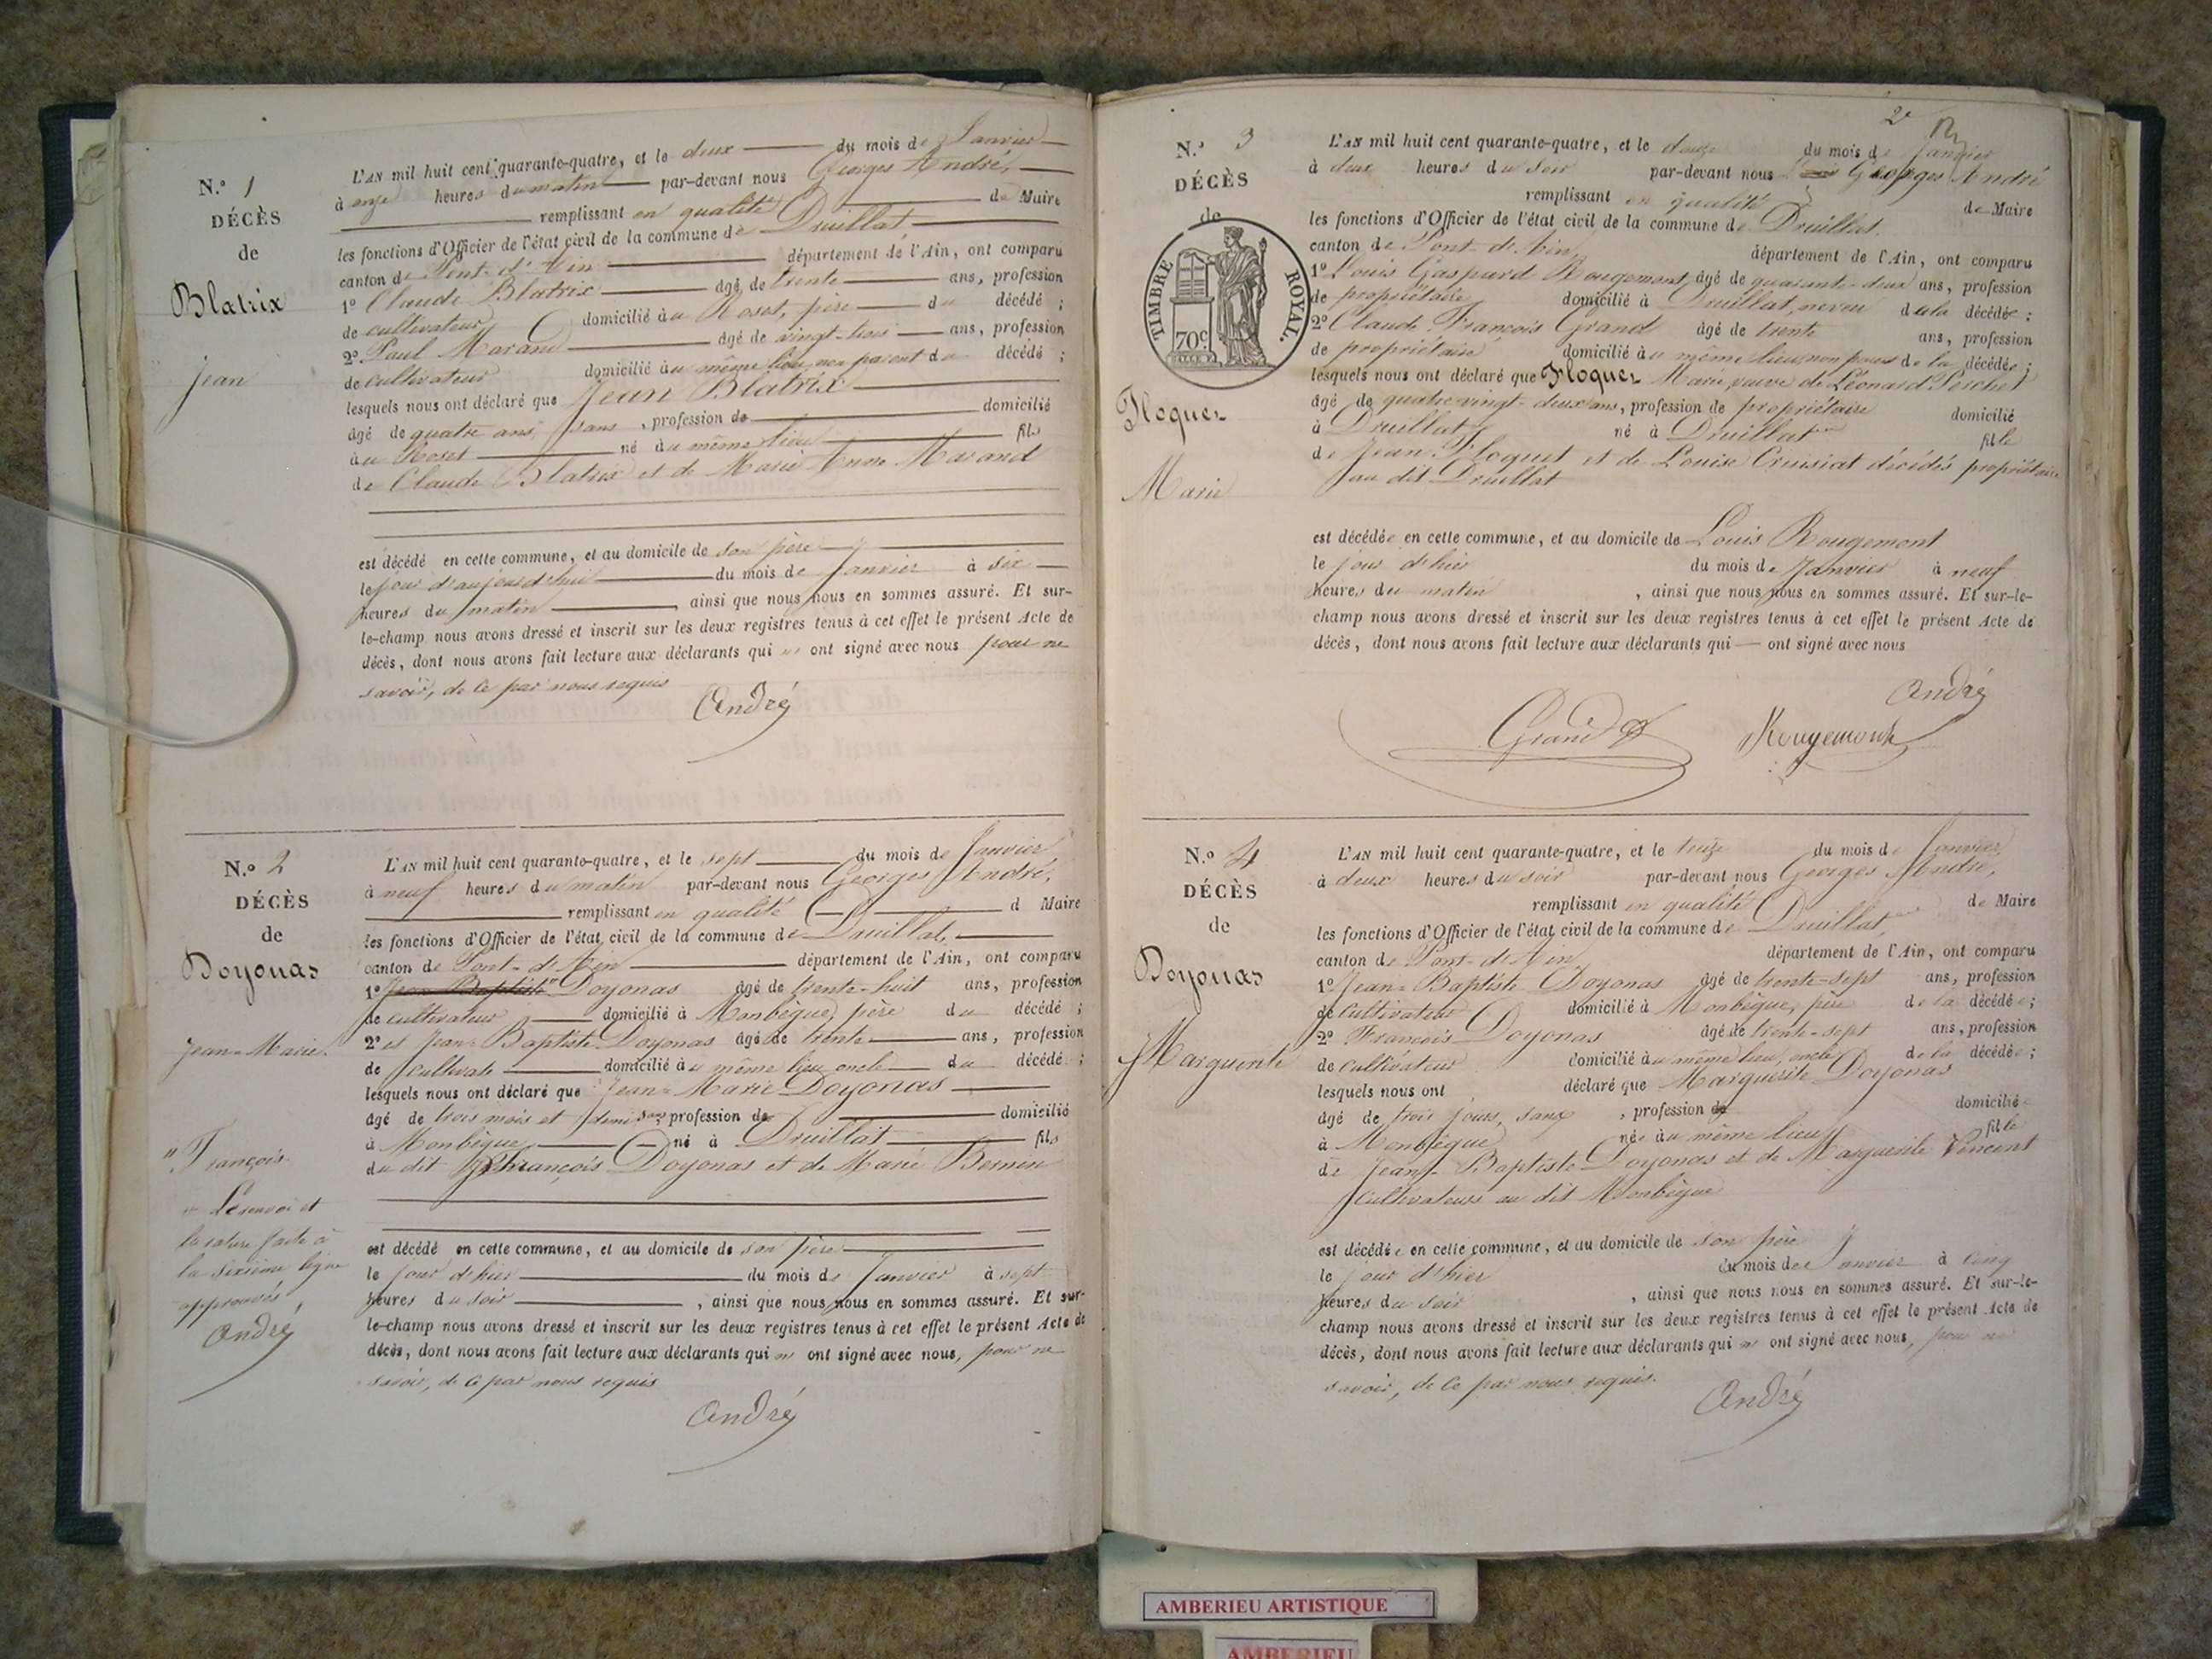 N.º 1
DÉCÈS
de
Blatrix
Jean
L'AN mil huit cent quarante-quatre, et le deux du mois de Janvier
à onze heures du matin par-devant nous Georges André,
remplissant en qualité de Maire
les fonctions d'Officier de l'état civil de la commune de Druillat,
canton de Pont-d'Ain département de l'Ain, ont comparu
1º Claude Blatrix âgé de trente ans, profession
de cultivateur domicilié au Roset, père du décédé ;
2º Paul Marand âgé de vingt-trois ans, profession
de cultivateur domicilié au même lieu, non parent du décédé ;
lesquels nous ont déclaré que Jean Blatrix
âgé de quatre ans, sans , profession de domicilié
au Roset né au même lieu fils
de Claude Blatrix et de Marie Anne Marand
est décédé en cette commune, et au domicile de son père
le jour d'aujourd'hui du mois de Janvier à six
heures du matin , ainsi que nous nous en sommes assuré. Et sur-
le-champ nous avons dressé et inscrit sur les deux registres tenus à cet effet le présent Acte de
décès, dont nous avons fait lecture aux déclarants qui n' ont signé avec nous pour ne
savoir, de ce par nous requis
André
N.º 2
DÉCÈS
de
Doyonas
Jean-Marie
"François
Le renvoi et
la rature faite à
la sixième ligne
approuvés
André
L'AN mil huit cent quarante-quatre, et le sept du mois de Janvier
à neuf heures du matin par-devant nous Georges André,
remplissant en qualité d Maire
les fonctions d'Officier de l'état civil de la commune de Druillat,
canton de Pont-d'Ain département de l'Ain, ont comparu
1º Jean-Baptiste" Doyonas âgé de trente-huit ans, profession
de cultivateur domicilié à Monbègue, père du décédé ;
2º et Jean-Baptiste Doyonas âgé de trente ans, profession
de cultivate domicilié au même lieu oncle du décédé ;
lesquels nous ont déclaré que Jean-Marie Doyonas
âgé de trois mois et demi sans profession de domicilié
à Monbègue né à Druillat fils
du dit François Doyonas et de Marie Bernin
est décédé en cette commune, et au domicile de son père
le jour d'hier du mois de Janvier à sept
heures du soir , ainsi que nous nous en sommes assuré. Et sur-
le-champ nous avons dressé et inscrit sur les deux registres tenus à cet effet le présent Acte de
décès, dont nous avons fait lecture aux déclarants qui n' ont signé avec nous, pour ne
savoir, de ce par nous requis
André
2e
N.º 3
DÉCÈS
de
TIMBRE ROYAL.
70c
Floquet
Marie
L'AN mil huit cent quarante-quatre, et le douze du mois de Janvier
à deux heures du soir par-devant nous Georges André
remplissant en qualité de Maire
les fonctions d'Officier de l'état civil de la commune de Druillat.
canton de Pont-d'Ain département de l'Ain, ont comparu
1º Louis Gaspard Rougemont, âgé de quarante-deux ans, profession
de propriétaire domicilié à Druillat, neveu de la décédée ;
2º Claude François Grand âgé de trente ans, profession
de propriétaire domicilié au même lieu, non parent de la décédée ;
lesquels nous ont déclaré que Floquet Marie, veuve de Léonard Perchet
âgé de quatre-vingt-deux ans, profession de propriétaire domicilié
à Druillat né à Druillat fille
de Jean Floquet et de Louise Cruisiat décédés propriétaires
au dit Druillat
est décédée en cette commune, et au domicile de Louis Rougemont
le jour d'hier du mois de Janvier à neuf
heures du matin , ainsi que nous nous en sommes assuré. Et sur-le-
champ nous avons dressé et inscrit sur les deux registres tenus à cet effet le présent Acte de
décès, dont nous avons fait lecture aux déclarants qui — ont signé avec nous
André
Grand Rougemont
N.º 4
DÉCÈS
de
Doyonas
Marguerite
L'AN mil huit cent quarante-quatre, et le treize du mois de Janvier
à deux heures du soir par-devant nous Georges André,
remplissant en qualité de Maire
les fonctions d'Officier de l'état civil de la commune de Druillat,
canton de Pont-d'Ain département de l'Ain, ont comparu
1º Jean-Baptiste Doyonas âgé de trente-sept ans, profession
de cultivateur domicilié à Monbègue, père de la décédée ;
2º François Doyonas âgé de trente-sept ans, profession
de cultivateur domicilié au même lieu, oncle de la décédée ;
lesquels nous ont déclaré que Marguerite Doyonas
âgé de trois jours, sans , profession de domicilié
à Monbègue née au même lieu fille
de Jean-Baptiste Doyonas et de Marguerite Vincent
cultivateurs au dit Monbègue
est décédée en cette commune, et au domicile de son père
le jour d'hier du mois de Janvier à cinq
heures du soir , ainsi que nous nous en sommes assuré. Et sur-le-
champ nous avons dressé et inscrit sur les deux registres tenus à cet effet le présent Acte de
décès, dont nous avons fait lecture aux déclarants qui n' ont signé avec nous, pour ne
savoir, de ce par nous requis.
André
AMBERIEU ARTISTIQUE
AMBERIEU